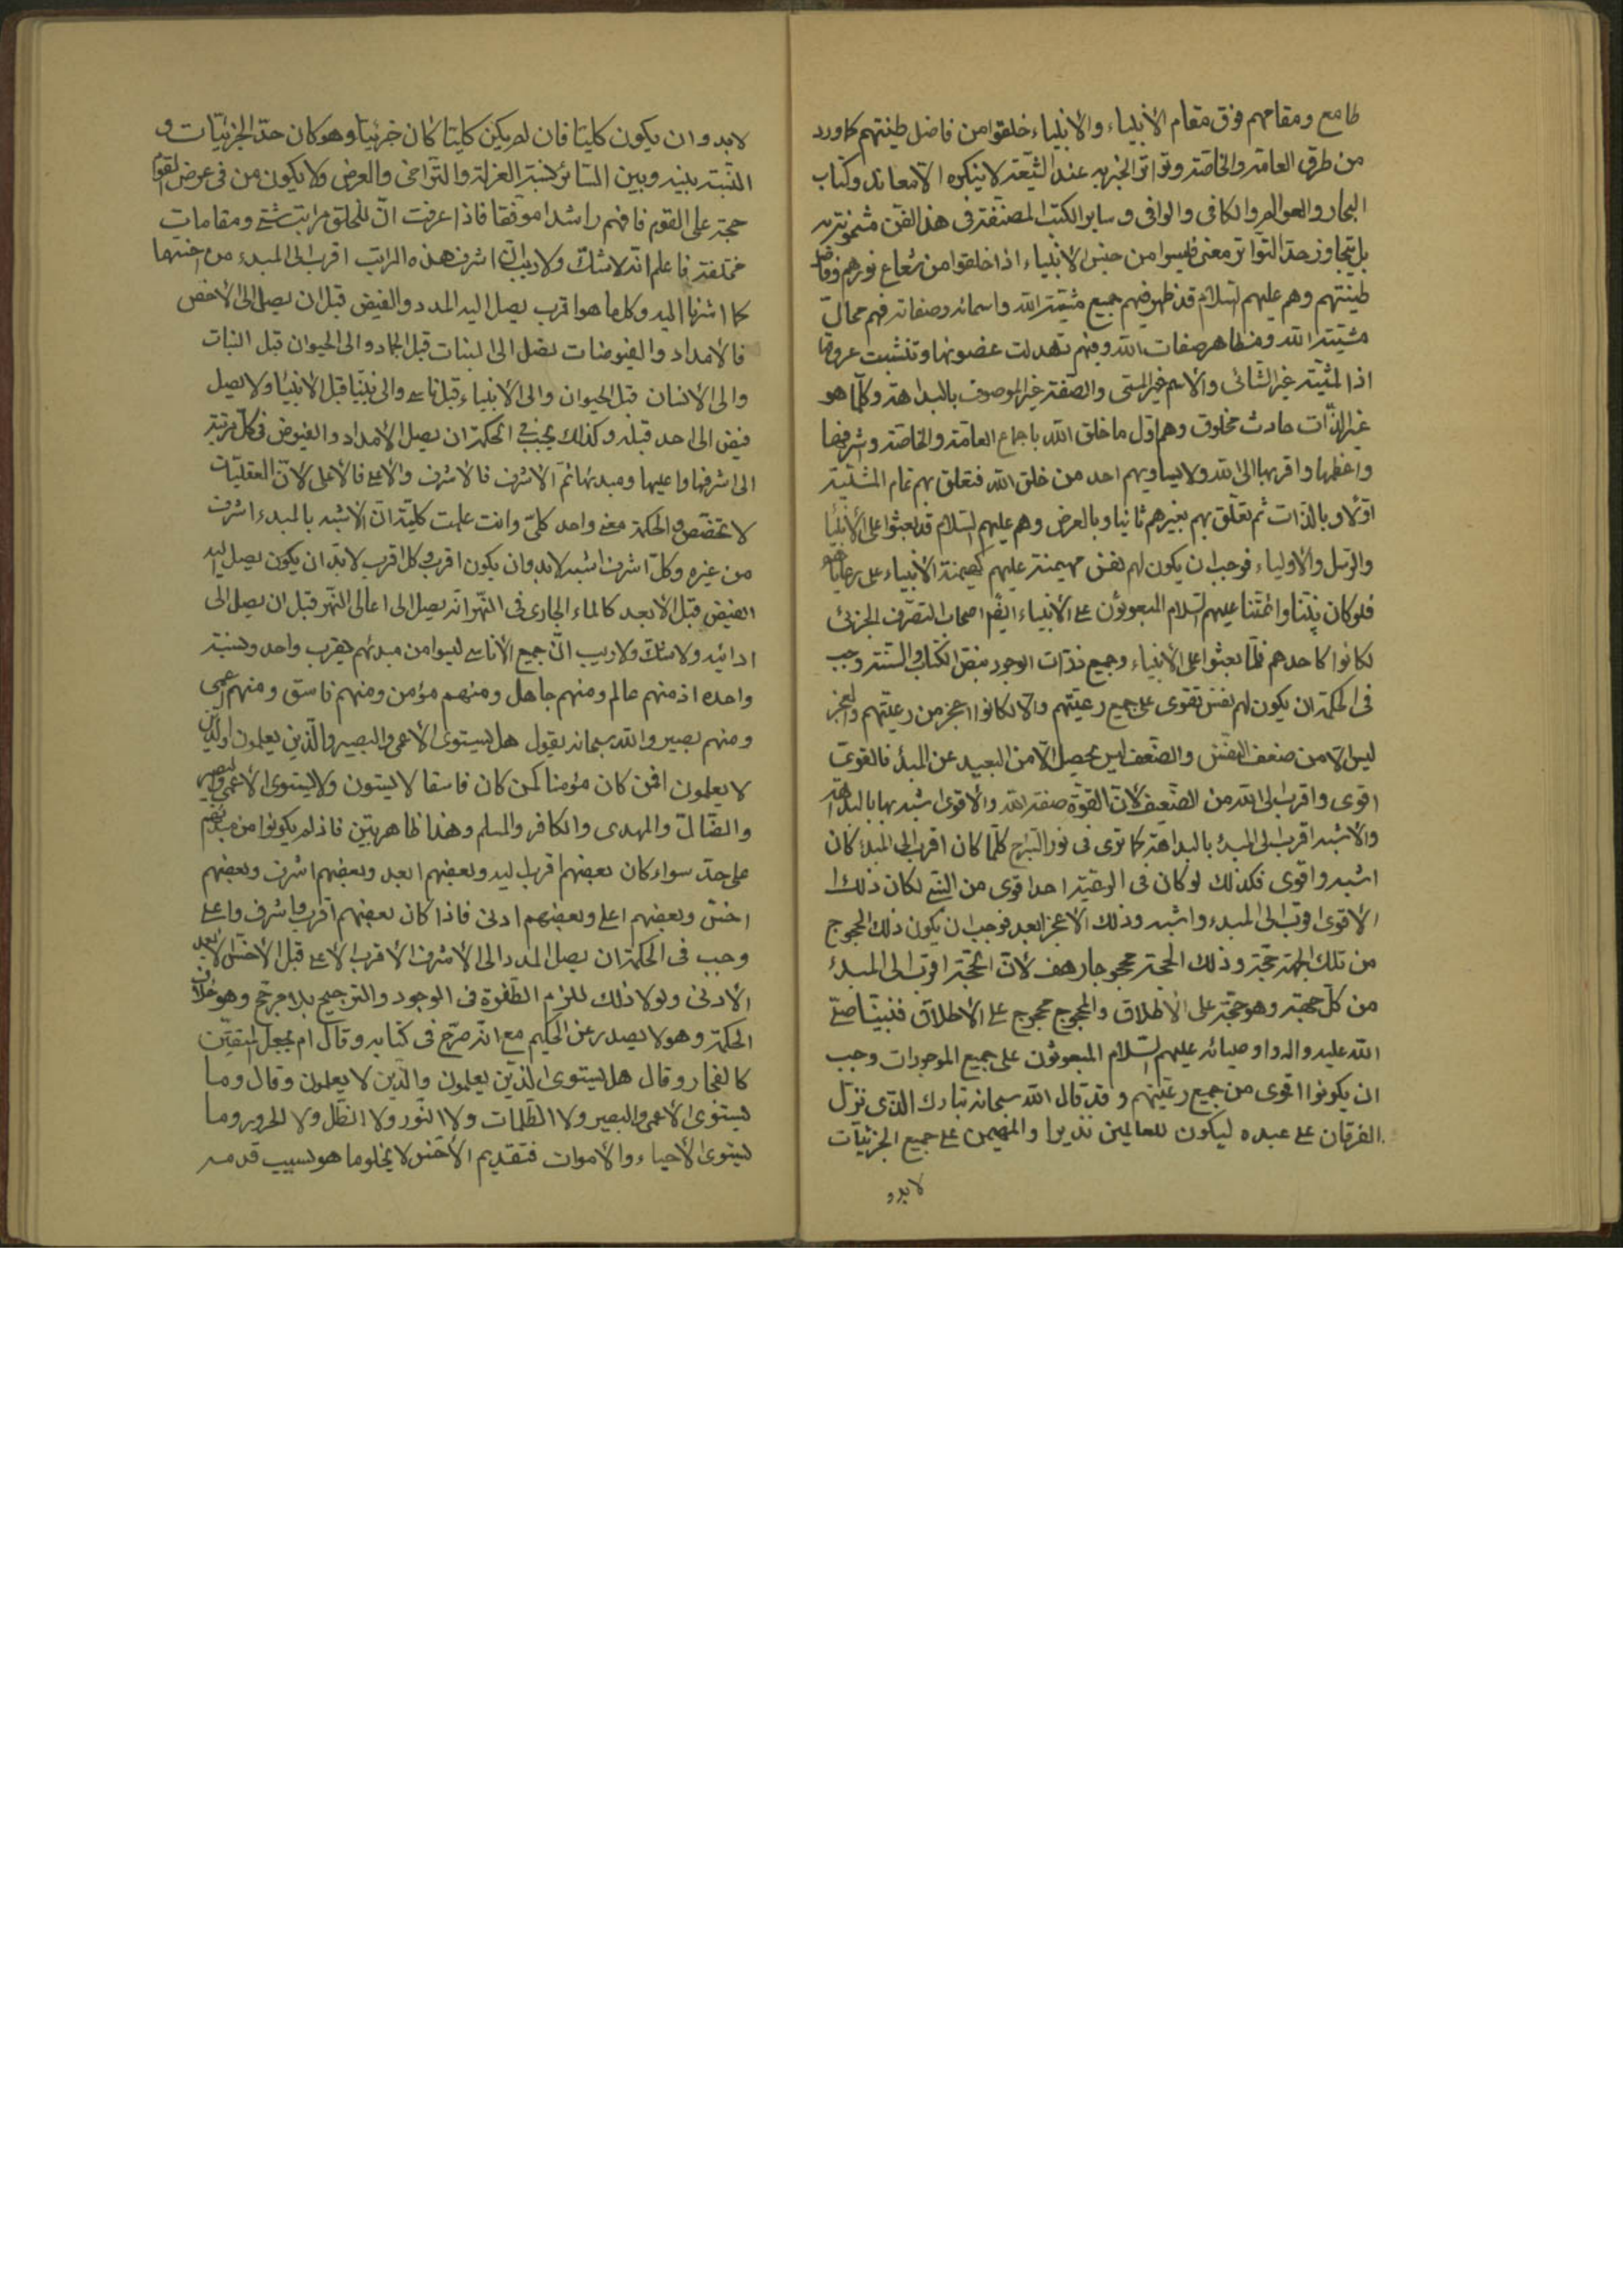 طامع ومقامهم فوق مقام الأنبياء والأنبياء خلقوا من فاضل طينتهم كما ورد
من طرق العامة والخاصة وتواتر الخبر به عند الشيعة لا ينكره الا معاند وكتاب
البحار والعوالم والكافى والوافى وساير الكتب المصنفة فى هذا الفن مشحونة به
بل يتجاوز حد التواتر معنى فليسوا من جنس الأنبياء اذا خلقوا من شعاع نورهم وفاضل
طينتهم وهم عليهم السلام قد ظهر فيهم جميع مشية الله واسمائه وصفاته فهم محال
مشية الله ومظاهر صفات الله وفيهم تهدلت غصونها وتنشبت عروقها
اذ المشية غير الشائى والاسم غير المسمى والصفة غير الموصوف بالبداهة وكلما هو
غير الذات حادث مخلوق وهم اول ما خلق الله باجماع العامة والخاصة واشرفها
واعظمها واقربها الى الله ولا يساويهم احد من خلق الله فتعلق بهم تمام المشية
اولا وبالذات ثم تعلق بهم بغيرهم ثانيا وبالعرض وهم عليهم السلام قد بعثوا على الأنبياء
والرسل والأولياء فوجب ان يكون لهم نفس مهيمنة عليهم كهيمنة الأنبياء على رعاياهم
فلو كان نبينا وائمتنا عليهم السلام المبعوثون على الأنبياء ايضا اصحاب التصرف الجزئى
لكانوا كاحدهم فلما بعثوا على الأنبياء وجميع ذرات الوجود بنص الكتاب والسنة وجب
فى الحكمة ان يكون لهم نفس تقوى على جميع رعيتهم والا لكانوا اعجز من رعيتهم والعجز
ليس الا من ضعف النفس والضعف ليس يحصل الا من البعيد عن المبدء فالقوى
اقوى واقرب الى الله من الضعيف لأن القوة صفة الله والأقوى اشبه بها بالبداهة
والأشبه اقرب الى المبدء بالبداهة كما ترى فى نور السراج كلما كان اقرب الى المبدء كان
اشبه واقوى فكذلك لو كان فى الرعية احد اقوى من النبى لكان ذلك
الأقوى اقرب الى المبدء واشبه وذلك الأعجز ابعد فوجب ان يكون ذلك المحجوج
من تلك الجهة حجة وذلك الحجة محجوجا هف لأن الحجة اقرب الى المبدء
من كل جهة وهو حجة على الاطلاق والمحجوج محجوج على الاطلاق فنبينا صلى
الله عليه واله واوصيائه عليهم السلام المبعوثون على جميع الموجودات وجب
ان يكونوا اقوى من جميع رعيتهم وقد قال الله سبحانه تبارك الذى نزل
الفرقان على عبده ليكون للعالمين نذيرا والمهيمن على جميع الجزئيات
لابدو
لابد وان يكون كليتا فان لم يكن كليتا كان جزئيا وهو كان حد الجزئيات و
النسبة بينه وبين السائر كنسبة العزلة والتراخى والعرض ولا يكون من فى عرض القوم
حجة على القوم فافهم راشدا موفقا فاذا عرفت ان للخلق مراتب شتى ومقامات
مختلفة فاعلم انه لا شك ولا ريب ان اشرف هذه المراتب اقرب الى المبدء من اخسها
كما اشرنا اليه وكل ما هو اقرب يصل اليه المدد والفيض قبل ان يصل الى الأخس
فالأمداد والفيوضات يصل الى النبات قبل الجماد والى الحيوان قبل النبات
والى الانسان قبل الحيوان والى الأنبياء قبل الأناسى والى نبينا قبل الأنبياء ولا يصل
فيض الى احد قبله وكذلك يجب فى الحكمة ان يصل الأمداد والفيوض فى كل مرتبة
الى اشرفها واعليها ومبدئها ثم الأشرف فالأشرف والأعلى فالأعلى لأن العقليات
لا تخصص والحكمة معنى واحد كلى وانت علمت كلية ان الأشبه بالمبدء اشرف
من غيره وكل اشرف اشبه لابد وان يكون اقرب وكل اقرب لابد ان يكون يصل اليه
الفيض قبل الأبعد كالماء الجارى فى النهر انه يصل الى اعالى النهر قبل ان يصل الى
ادانيه ولا شك ولا ريب ان جميع الأناسى ليسوا من مبدئهم بقرب واحد ونسبة
واحدة اذ منهم عالم ومنهم جاهل ومنهم مؤمن ومنهم فاسق ومنهم اعمى
ومنهم بصير والله سبحانه يقول هل يستوى الأعمى والبصير والذين يعلمون والذين
لا يعلمون افمن كان مؤمنا كمن كان فاسقا لا يستون ولا يستوى الأعمى والبصير
والضال والمهدى والكافر والمسلم وهذا ظاهر بين فاذ لم يكونوا من مبدئهم
على حد سواء كان بعضهم اقرب اليه وبعضهم ابعد وبعضهم اشرف وبعضهم
اخس وبعضهم اعلى وبعضهم ادنى فاذا كان بعضهم اقرب واشرف واعلى
وجب فى الحكمة ان يصل المدد الى الأشرف الأقرب الأعلى قبل الأخس الأبعد
الأدنى ولولا ذلك للزم الطفرة فى الوجود والترجيح بلا مرجح وهو خلاف
الحكمة وهو لا يصدر عن الحكيم مع انه صرح فى كتابه وقال ام نجعل المتقين
كالفجار وقال هل يستوى الذين يعلمون والذين لا يعلمون وقال وما
يستوى الأعمى والبصير ولا الظلمات ولا النور ولا الظل ولا الحرور وما
يستوى الأحياء والأموات فتقديم الأخس لا يخلو ما هو لسبب قدمه